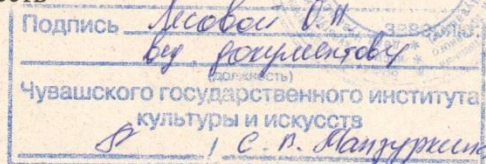 Подпись Лесовой О.Н заверяю:
вед. документовед
(должность)
Чувашского государственного института
культуры и искусств
/ С. В.